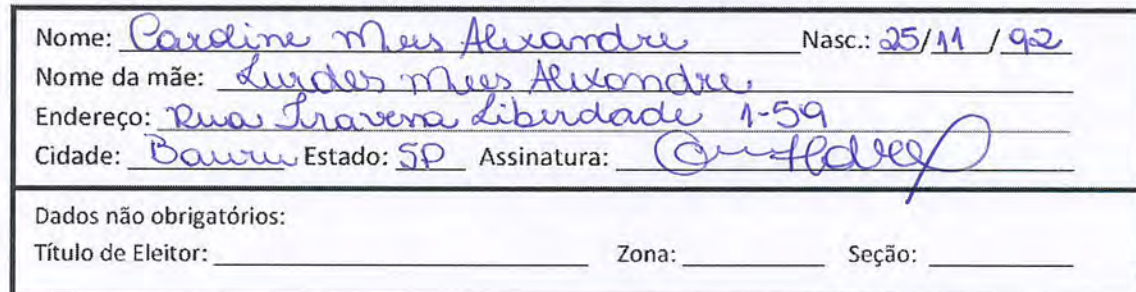 Nome: Caroline Mees Alexandre Nasc.: 25/11/92
Nome da mãe: Lurdes Mees Alexandre
Endereço: Rua Travessa Liberdade 1-59
Cidade: Bauru Estado: SP Assinatura:
Dados não obrigatórios:
Título de Eleitor: Zona: Seção: